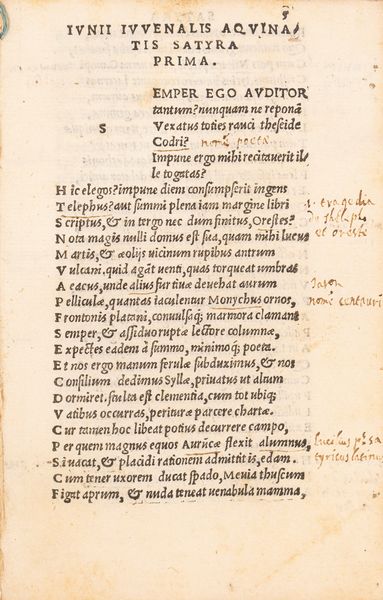 IVNII IVVENALIS AQVINA/
TIS SATYRA
PRIMA.
S EMPER EGO AVDITOR
tantum? nunquam ne reponã
Vexatus toties rauci theseide
Codri? nome poeta
Impune ergo mihi recitauerit il/
le togatas?
Hic elegos? impune diem consumpserit ingens
Telephus? aut summi plena iam margine libri
Scriptus, & in tergo nec dum finitus, Orestes?
Nota magis nulli domus est sua, quam mihi lucus
Martis, & æolijs uicinum rupibus antrum
Vulcani. quid agãt uenti, quas torqueat umbras
Aeacus, unde alius furtiuæ deuehat aurum
Pelliculæ, quantas iaculetur Monychus ornos,
Frontonis platani, conuulsaq; marmora clamant
Semper, & assiduo ruptæ lectore columnæ,
Expectes eadem à summo, minimoq; poeta.
Et nos ergo manum ferulæ subduximus, & nos
Consilium dedimus Syllæ, priuatus ut altum
Dormiret. stulta est clementia, cum tot ubiq;
Vatibus occurras, perituræ parcere chartæ.
Cur tamen hoc libeat potius decurrere campo,
Per quem magnus equos Auruncæ flexit alumnus,
Si uacat, & placidi rationem admittitis, edam.
Cum tener uxorem ducat spado, Meuia thuscum
Figat aprum, & nuda teneat uenabula mamma,
tragedia
et oreste
Jason
nome centauri
tyricus latinus